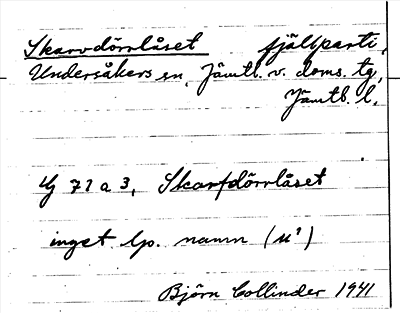 Skarvdörrlåset fjällparti,
Undersåkers sn, Jämtl. v. doms. tg,
Jämtl. l.
Uj 71 a 3, Skarfdörrlåset
inget lp. namn (u²)
Björn Collinder 1941